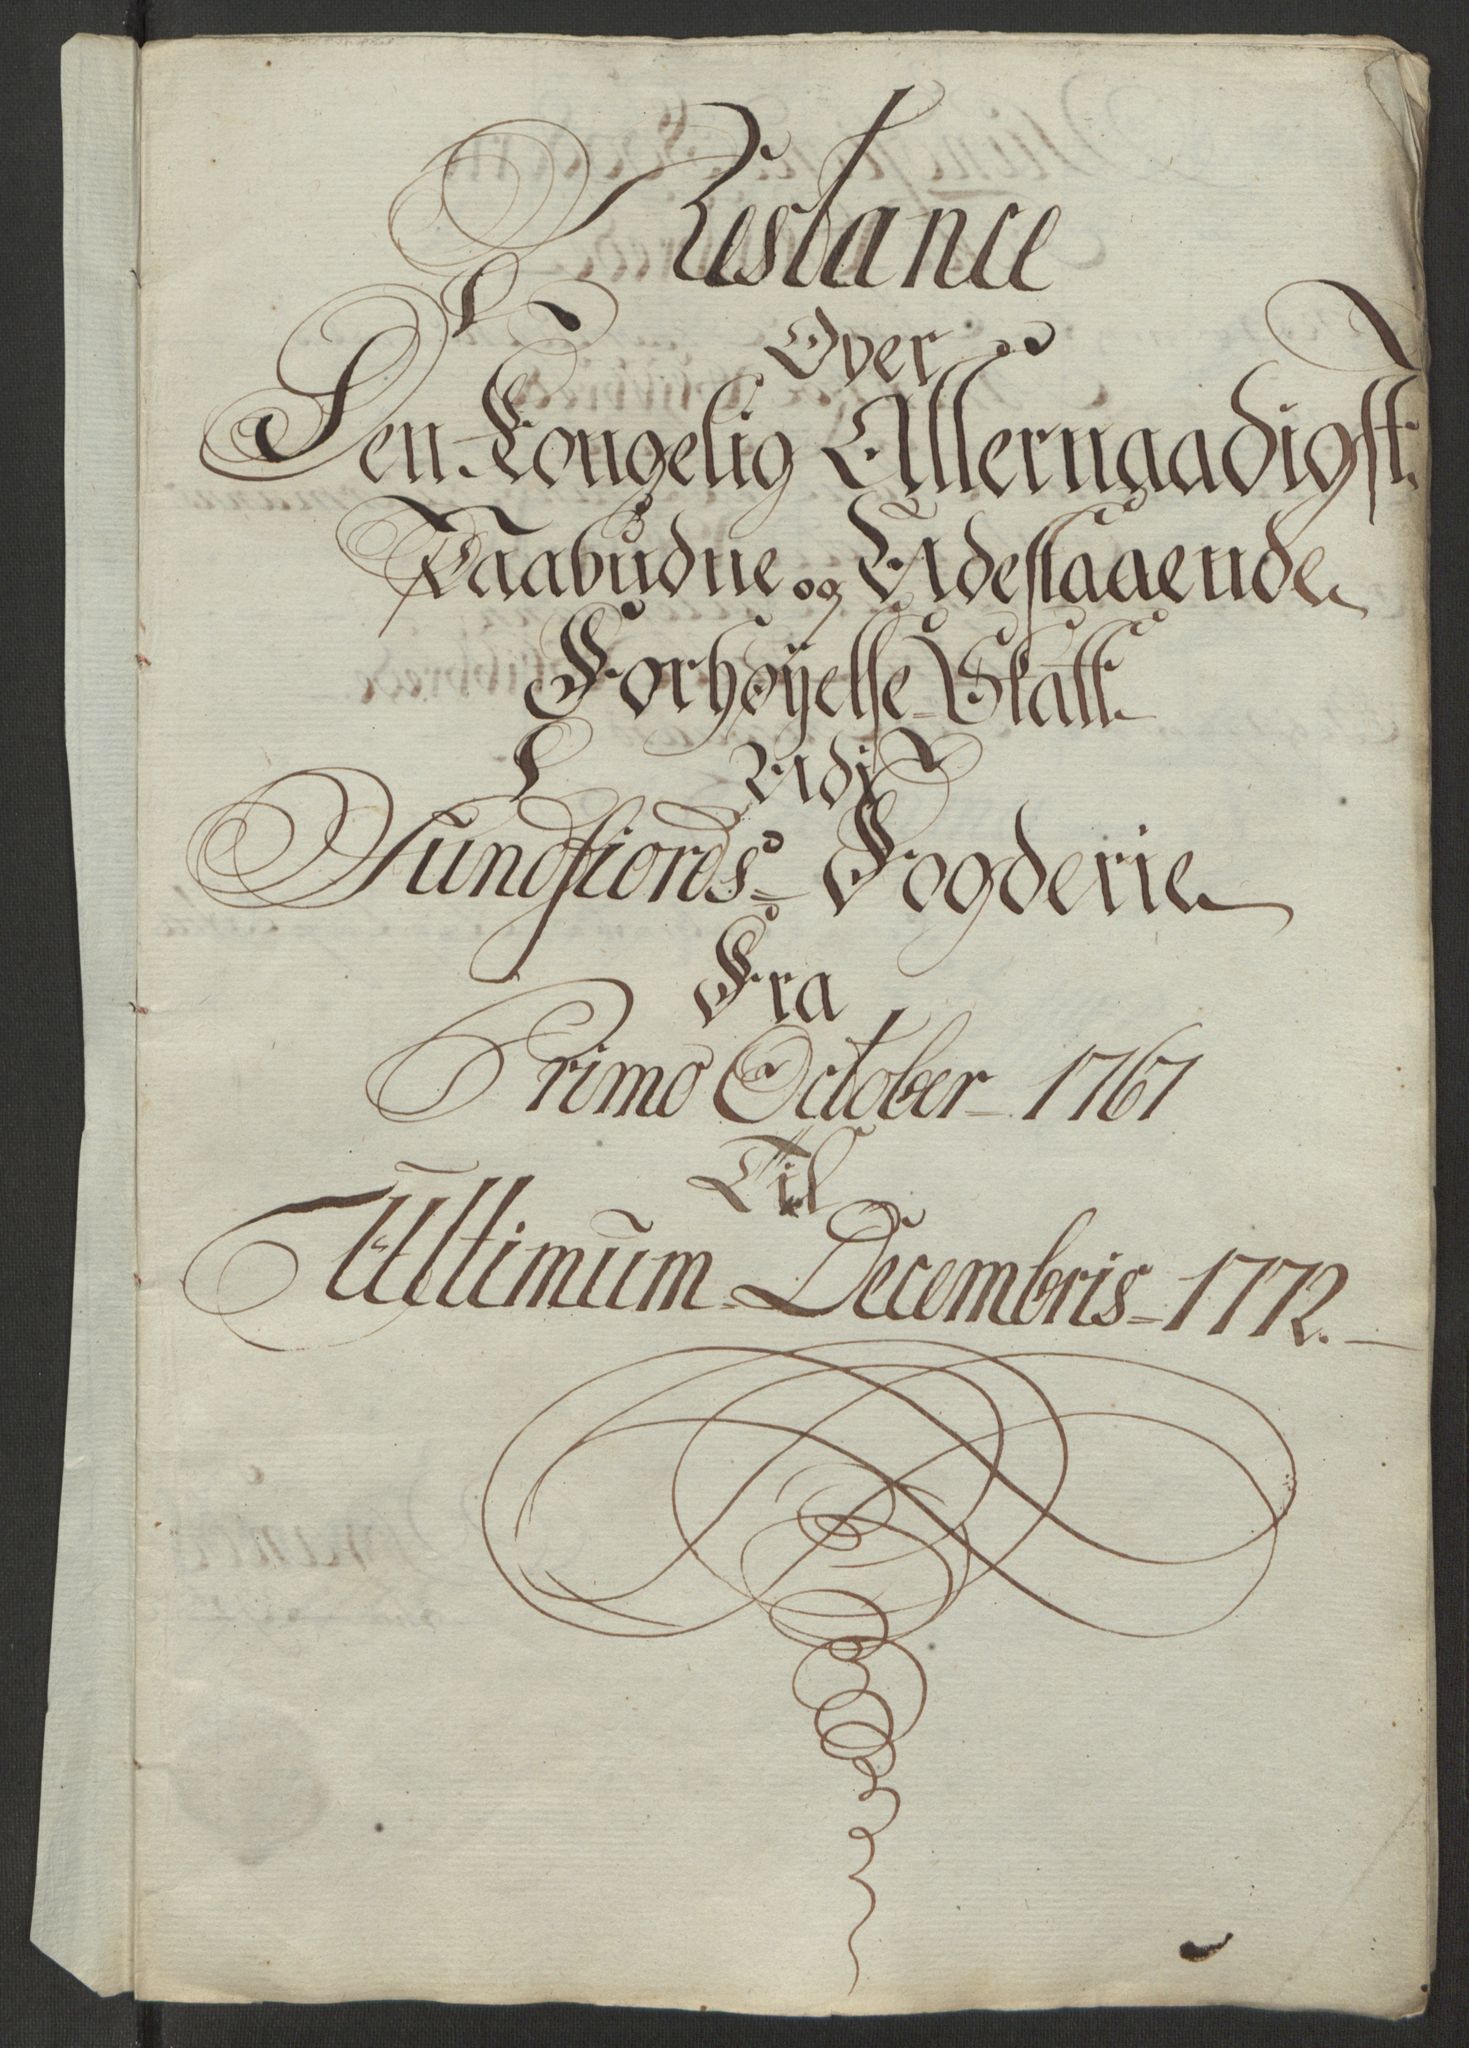 Restance
Over
Den Kongelig Allernaadigst
Paabudne og Udestaaende
Forhøyelse Skatt
Udi
Sundfiords Fogderie
Fra
Primo October 1767
Til
Ultimum Decembris 1772.